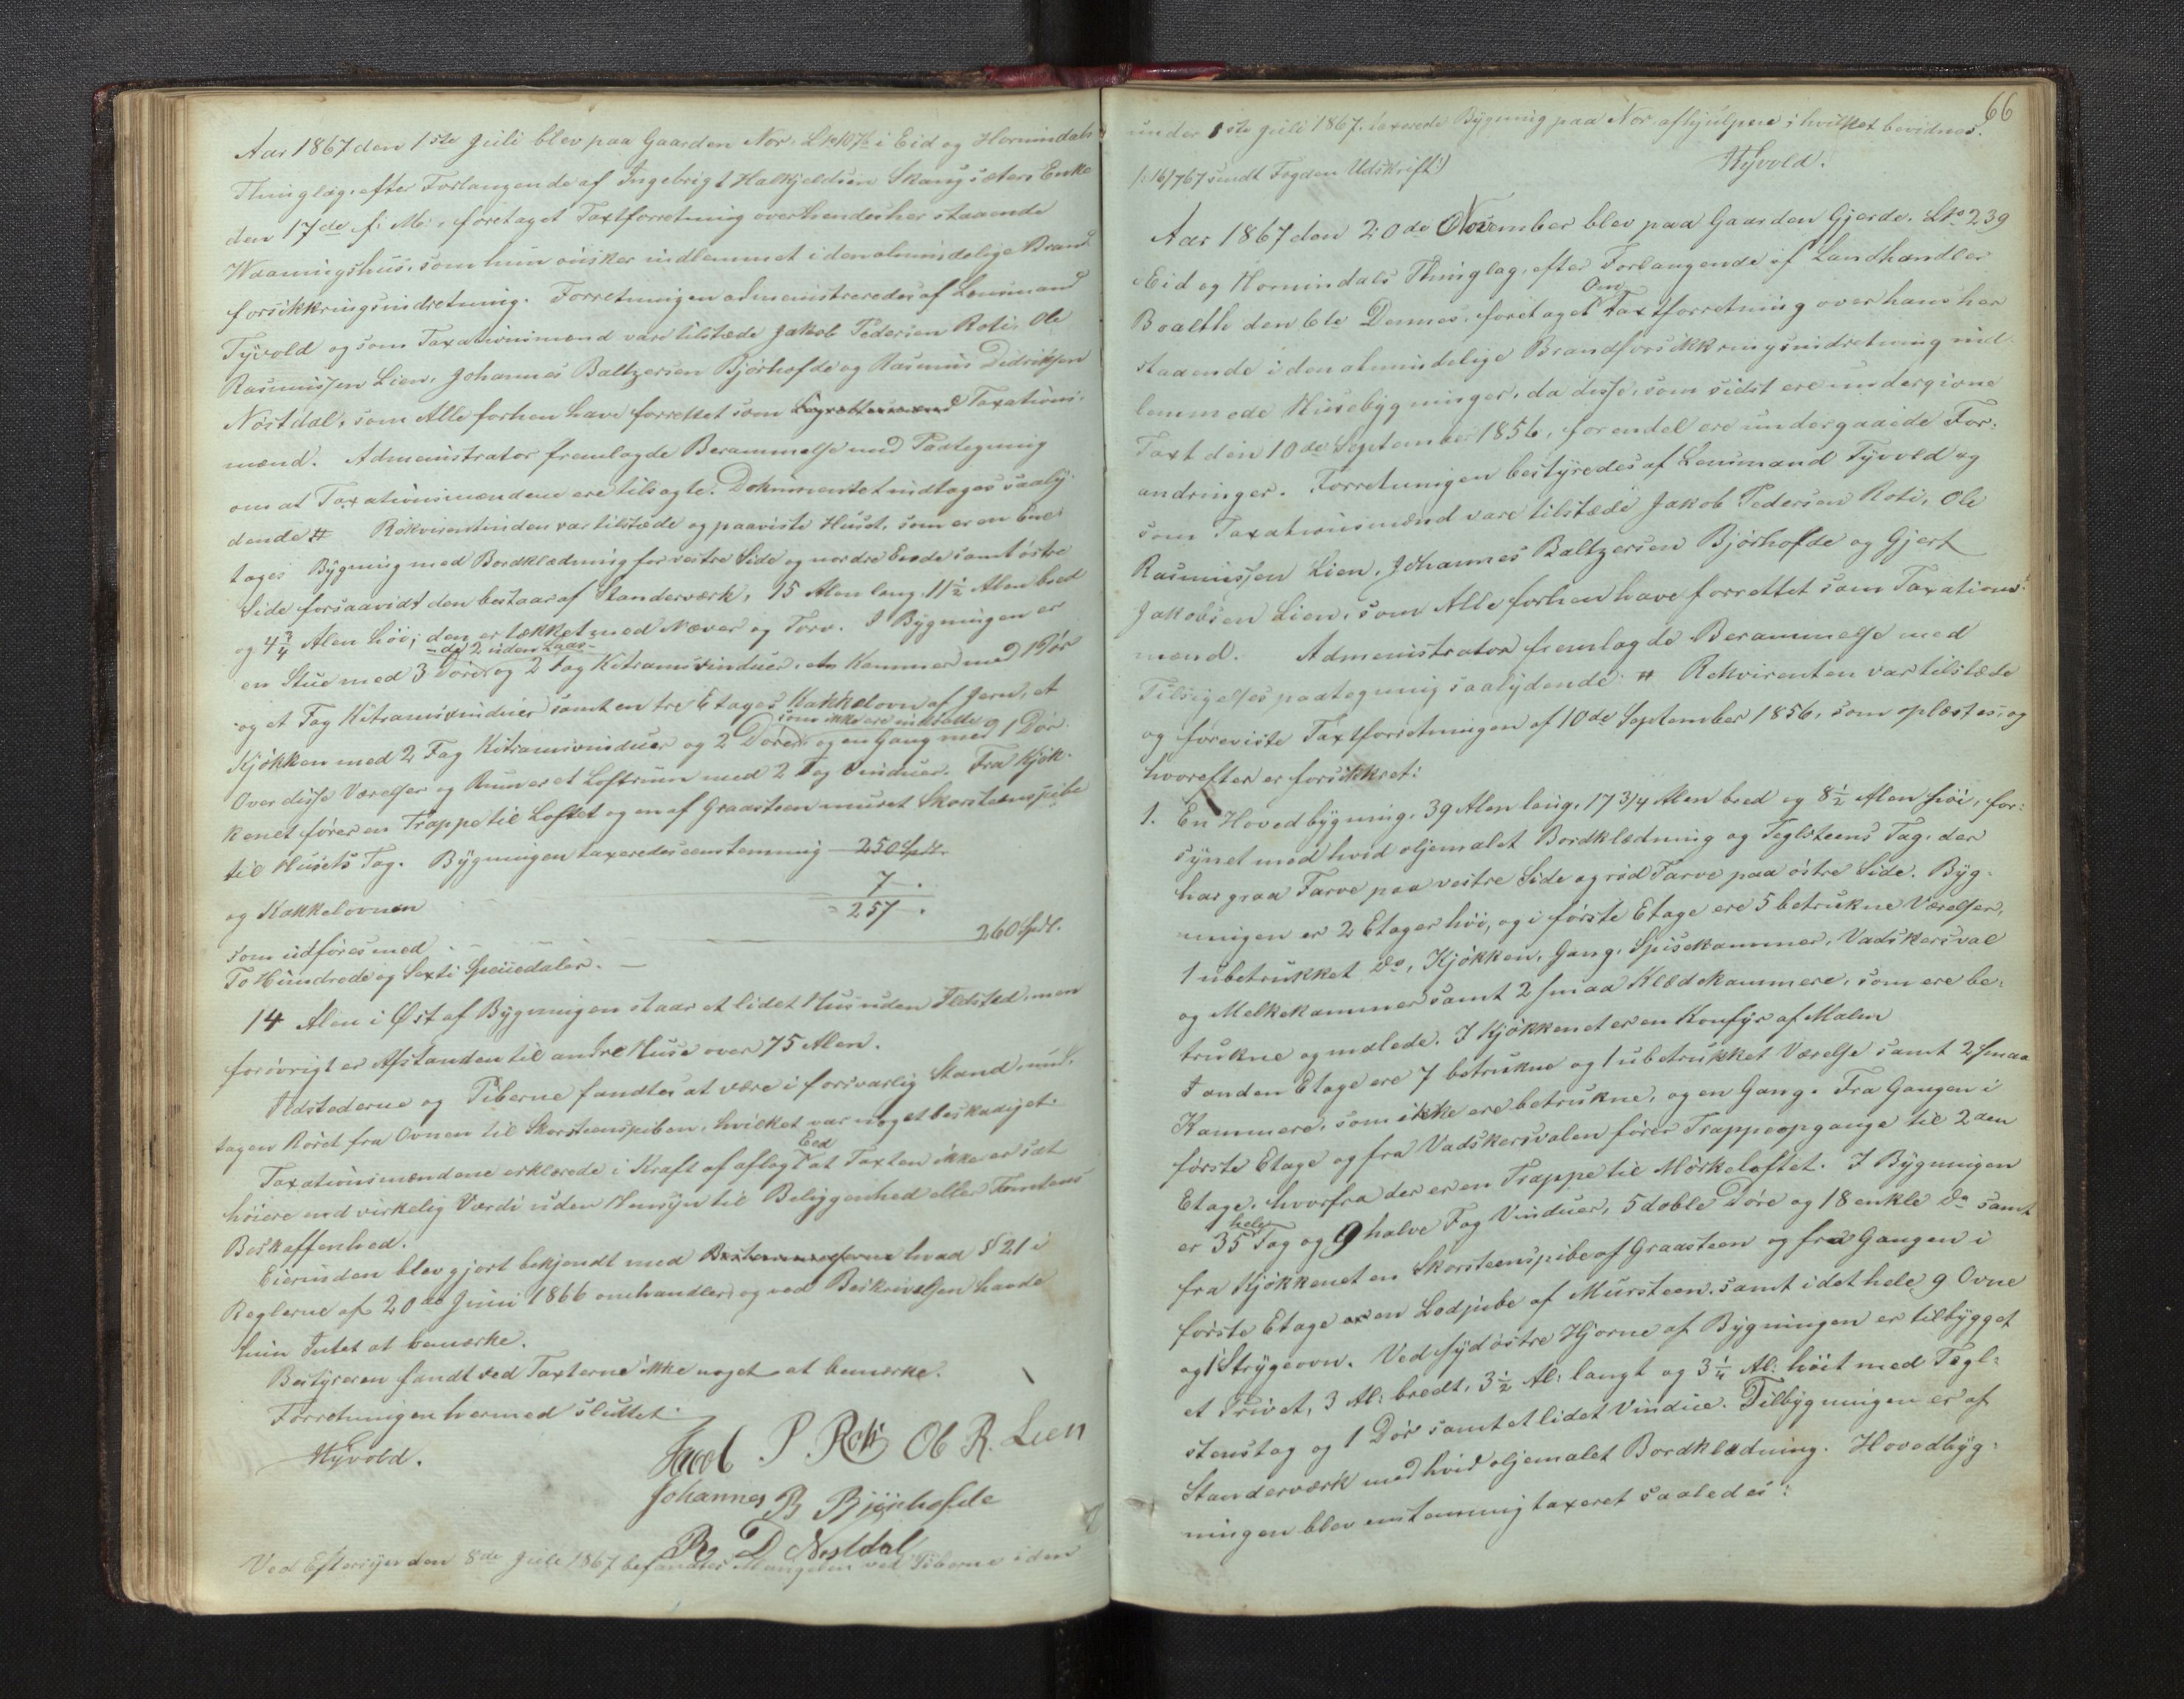 Aar 1867 den 1ste Juli blev paa Gaarden Nor, i Eid og Hornindals
Thinglag, efter Forlangende af Ingebrigt Halkjeldsen Skaugsæters Enke
den 17de f: M:, foretaget Taxtforretning over hendes her staaende
Waaningshus, som hun önsker indlemmet i den almindelige Brand
forsikkringsindretning. Forretningen administreredes af Lensmand
Tÿvold og som Taxationsmænd vare tilstæde Jakob Pedersen Roti, Ole
Rasmussen Lien, Johannes Baltzersen Bjørhofde og Rasmus Didriksen
Nöstdal, som Alle forhen have forrettet som Taxations-
mænd. Administrator fremlagde Berammelse med Paategning
om at Taxationsmændene ere tilsagte. Dokumentet indtages saalÿ-
dende # Rekvirentinden var tilstæde og paaviste Huset, som er en Een-
tages Bÿgning med Bordklædning for vestre Side og nordre Ende samt östre
Side forsaavidt den bestaar af Standerværk, 15 Alen lang, 11½ Alen bred
og 4¾ Alen höi; den er tækket med Næver og Torv. I Bÿgningen er
- de 2 uden Laas -
en Stue med 3 Döre og 2 Fag Kitramsvinduer, et Kammer med 1 Dör
og et Fag Kitramsvinduer samt en tre Etages Kakkelovn af Jern, et
som ikke ere inkrolte
Kjökken med 2 Fag Kitramsvinduer og 2 Döre og en Gang med 1 Dör.
Over disse Værelser og Rum er et Loftrum med 2 Fag Vinduer. Fra Kjök-
kenet förer en Trappe til Loftet og en af Graasteen muret Skorsteenspibe
til Husets Tag. Bÿgningen taxeredes eenstemmig - 250 Spdlr.
og Kakkelovnen 7 "
257 "
som udföres med 260 Spdl.
To Hundrede og Sexti Speciedaler. —
14 Alen i Øst af Bÿgningen staar et lidet Hus uden Ildsted, men
forövrigt er Afstanden til andre Huse over 75 Alen.
Ildstederne og Piberne fandtes at være i forsvarlig Stand, und-
tagen Röret fra Ovnen til Skorsteenspiben, hvilket var noget beskadiget.
Eed
Taxationsmændene erklærede i Kraft af aflagt at Taxten ikke er sat
höiere end virkelig Værdi uden Hensÿn til Beliggenhed eller Tomtens
Beskaffenhed.
Eierinden blev gjort bekjendt med hvad § 21 i
Reglerne af 20de Juni 1866 omhandler, og ved Beskrivelsen havde
hun Intet at bemærke.
Bestÿreren fandt ved Taxterne ikke noget at bemærke.
Forretningen hermed sluttet
Tÿvold. Jacob P. Roti Ole R. Lien
Johannes B Bjørhofde
R D Nøstdal
Ved Eftersÿn den 8de Juli 1867 befandtes Mangelen ved Piberne i den
66
under 1ste Juli 1867 taxerede Bÿgning paa Nor afhjulpen; hvilket bevidnes.
Tÿvold.
/: 16/7 67 sendt Fogden Udskrift :/
Aar 1867 den 20de November blev paa Gaarden Gjerde, Lno 239
Eid og Hornindals Thinglag, efter Forlangende af Landhandler
Om
Boalth den 6te Dennes, foretaget Taxtforretning over hans her
staaende i den almindelige Brandforsikkringsindretning ind-
lemmede Husebÿgninger, da disse, som sidst ere undergivne
Taxt den 10de September 1856, for endel ere undergaaede For-
andringer. Forretningen bestÿredes af Lensmand Tÿvold og
som Taxationsmænd vare tilstæde Jakob Pedersen Roti, Ole
Rasmussen Lien, Johannes Baltzersen Bjørhofde og Gjert
Jakobsen Lien, som Alle forhen have forrettet som Taxations-
mænd. Administrator fremlagde Berammelse med
Tilsigelsespaategning saalÿdende: # Rekvirenten var tilstæde
og foreviste Taxtforretningen af 10de September 1856, som oplæstes, og
hvorefter er forsikkret:
1. En Hovedbÿgning, 39 Alen lang, 17 3/4 Alen bred og 8½ Alen höi, for-
sÿnet med hvid oljemalet Bordklædning og Teglsteens Tag, der
har graa Farve paa vestre Side og röd Farve paa östre Side. Bÿg-
ningen er 2 Etager höi, og i förste Etage ere 5 betrukne Værelser,
1 ubetrukket do, Kjökken, Gang, Spisekammer, Vadskersval
og Melkekammer samt 2 smaa Klædekammere, som ere be-
trukne og malede. I Kjökkenet er en Komfÿr af Malm
I anden Etage ere 7 betrukne og 1 ubetrukket Værelse samt 2 smaa
Kammere, som ikke ere betrukne, og en Gang. Fra Gangen i
förste Etage og fra Vadskersvalen förer Trappeopgange til 2den
Etage, hvorfra der er en Trappe til Mörkeloftet. I Bÿgningen
hele
er 35 Fag og 9 halve Fag Vinduer, 5 doble Döre og 18 enkle do samt
fra Kjökkenet en Skorsteenspibe af Graasteen og fra Gangen i
förste Etage en Lodpibe af Mursteen, samt i det hele 9 Ovne
og 1 Strÿgeovn. Ved sÿdöstre Hjörne af Bÿgningen er tilbÿgget
et Privet, 3 Al: bredt, 3½ Al: langt og 3¼ Al: höit med Tegl-
stenstag og 1 Dör samt et lidet Vindue. Tilbÿgningen er af
Standerværk med hvid oljemalet Bordklædning. Hovedbÿg-
ningen blev enstemmig taxeret saaledes: